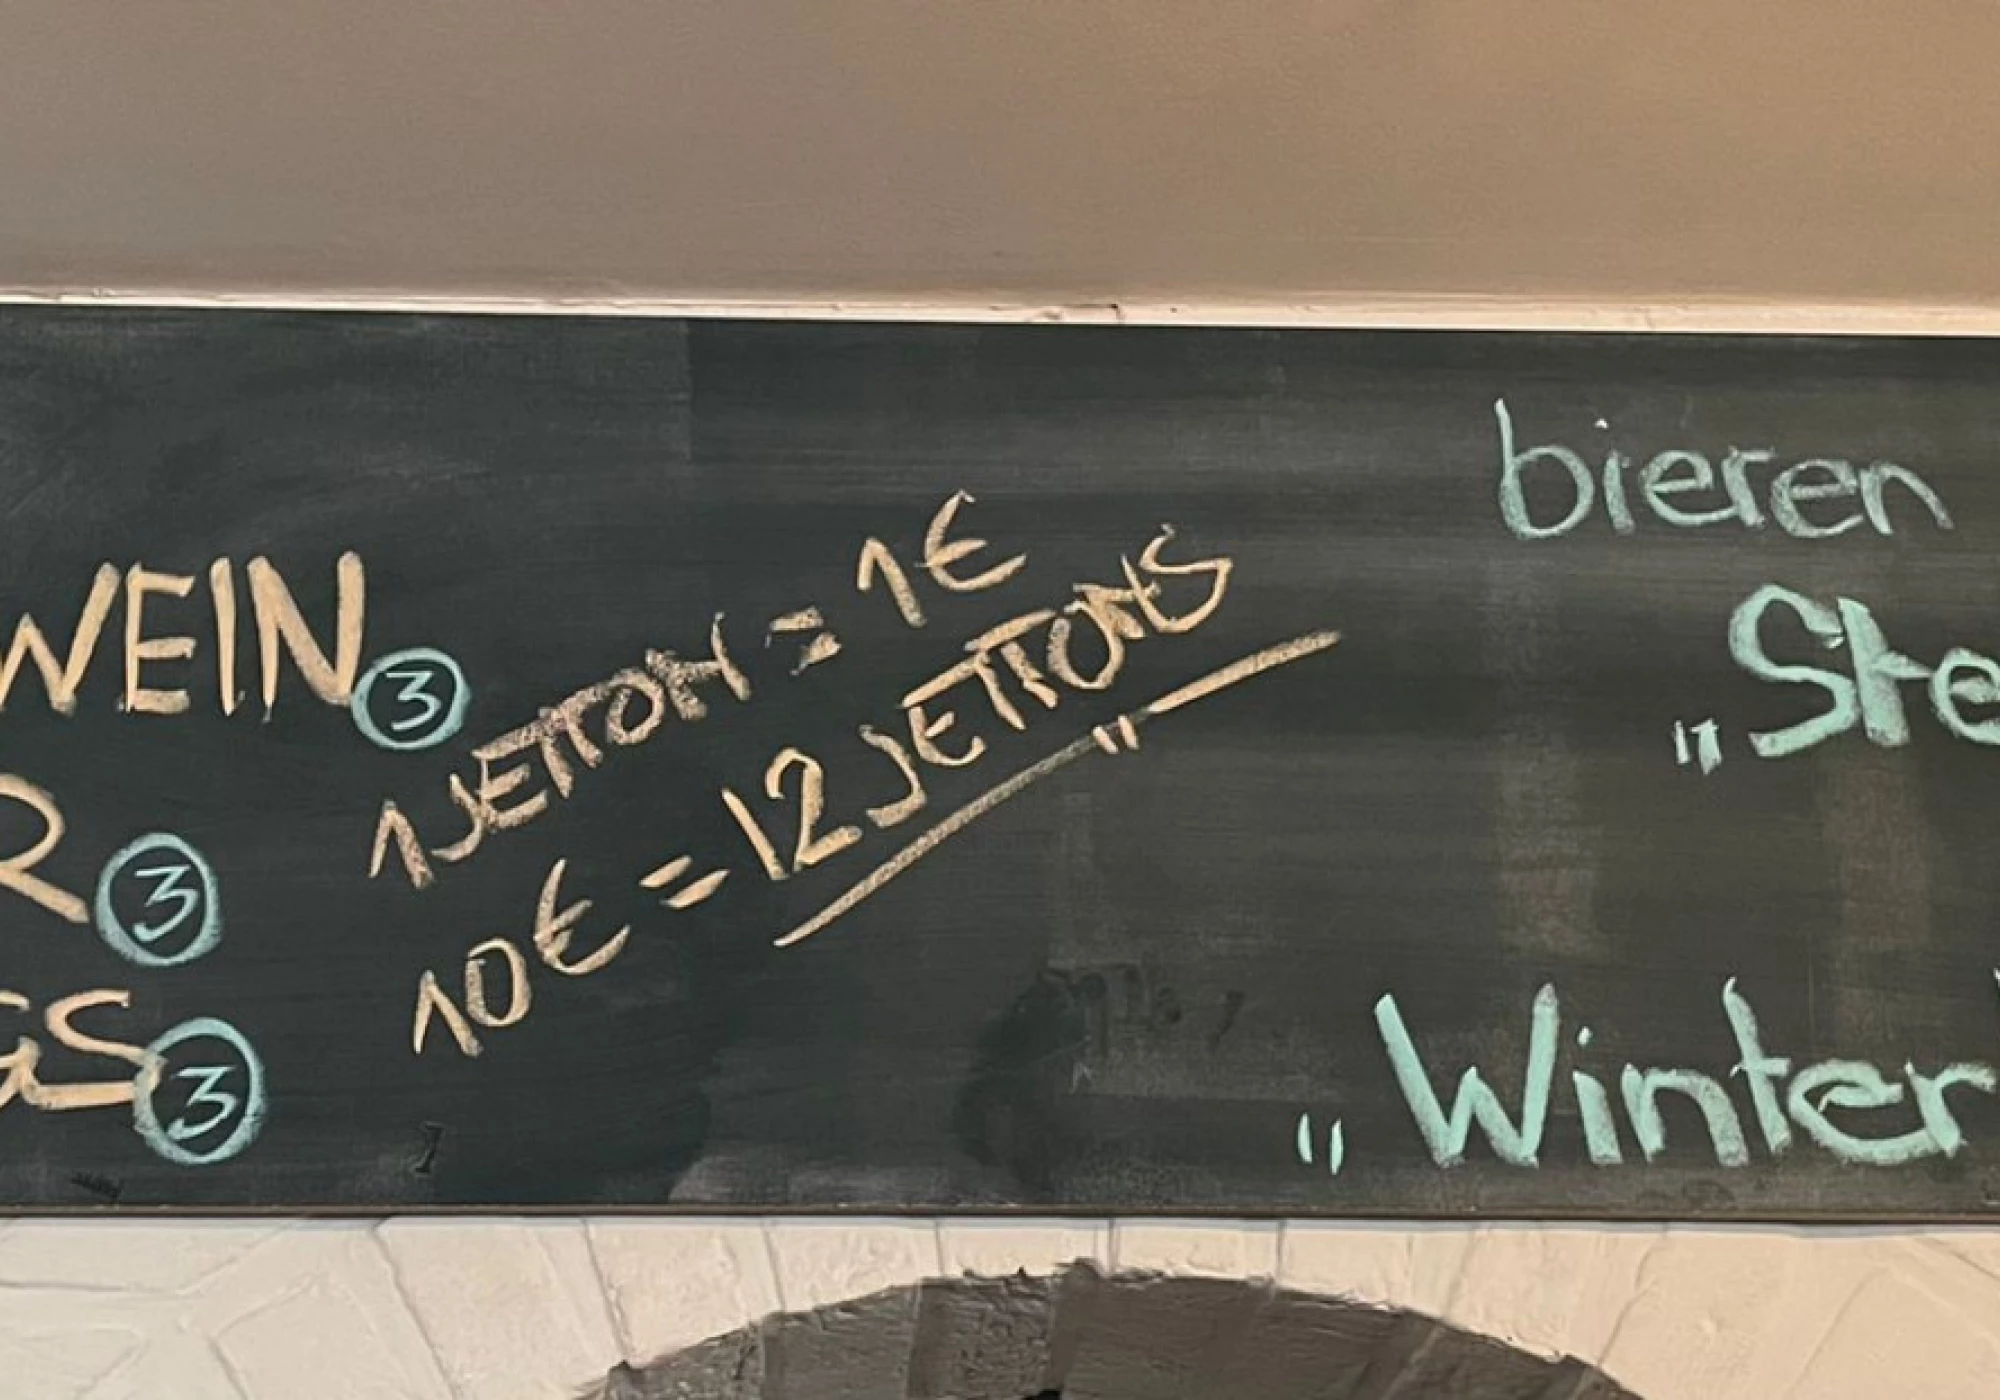 WEIN 3
R 3
GS 3
1 JETTON = 1€
10€ = 12 JETTONS
"
bieren
„Ste
„Winter